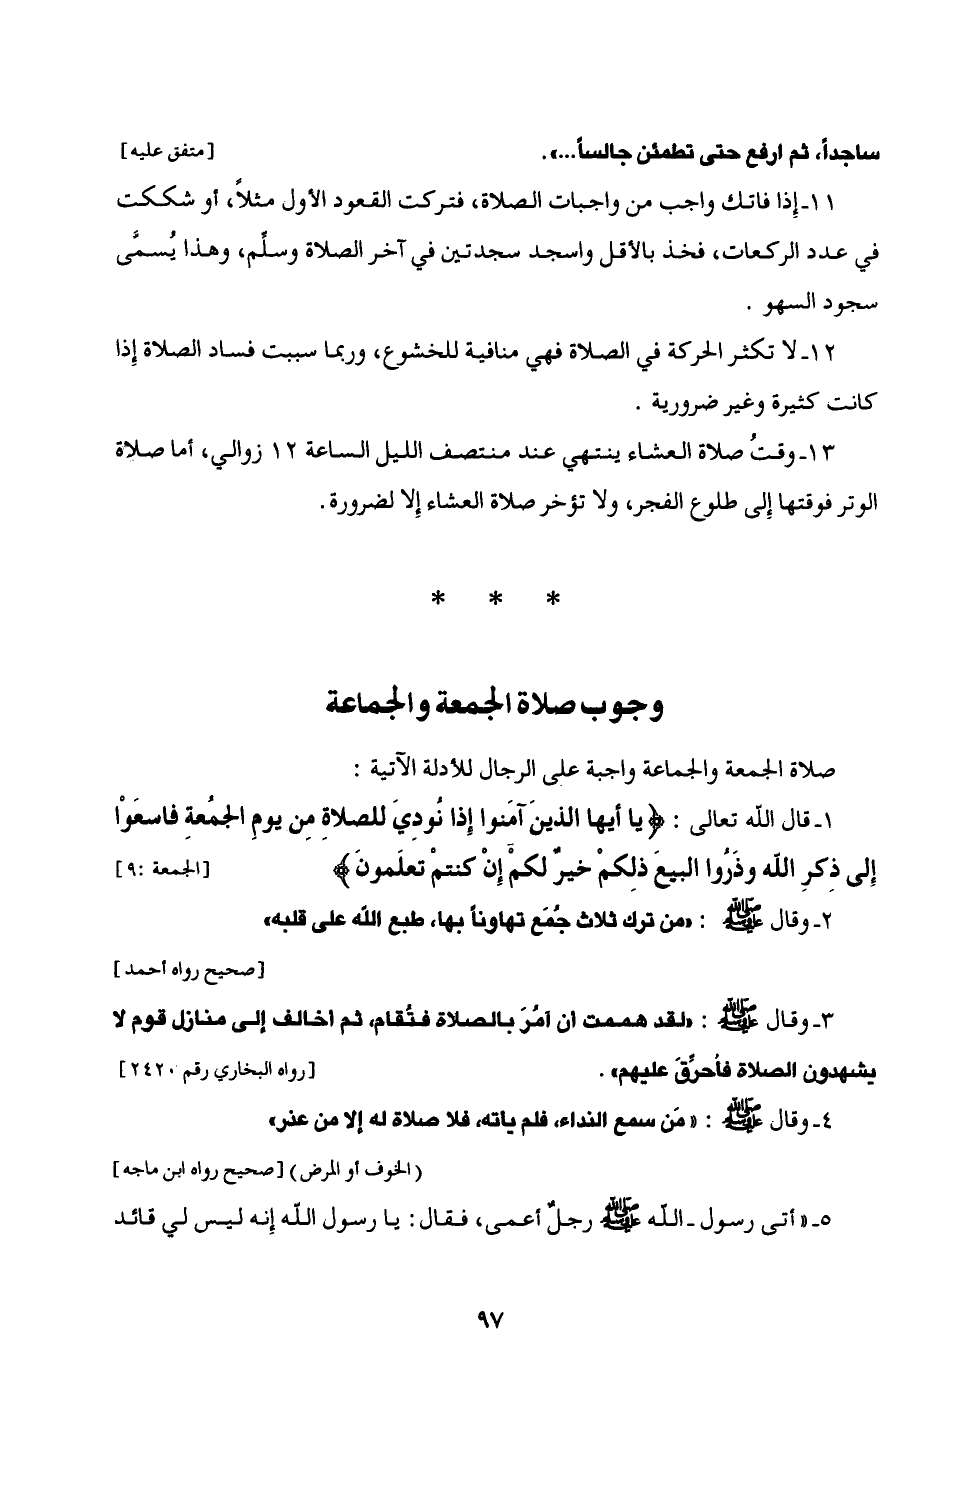 ساجداً، ثم ارفع حتى تطمئن جالساً...». [متفق عليه]
١١ـ إذا فاتك واجب من واجبات الصلاة، فتركت القعود الأول مثلاً، أو شككت
في عدد الركعات، فخذ بالأقل واسجد سجدتين في آخر الصلاة وسلِّم، وهذا يُسمَّى
سجود السهو .
١٢ـ لا تكثر الحركة في الصلاة فهي منافية للخشوع، وربما سببت فساد الصلاة إذا
كانت كثيرة وغير ضرورية .
١٣ـ وقتُ صلاة العشاء ينتهي عند منتصف الليل الساعة ١٢ زوالي، أما صلاة
الوتر فوقتها إلى طلوع الفجر، ولا تؤخر صلاة العشاء إلا لضرورة.
* * *
وجوب صلاة الجمعة والجماعة
صلاة الجمعة والجماعة واجبة على الرجال للأدلة الآتية :
١ـ قال الله تعالى : ﴿يا أيها الذينَ آمَنوا إذا نُوديَ للصلاةِ مِن يومِ الجمُعةِ فاسعَوْا
إلى ذِكرِ الله وذَرُوا البيعَ ذلِكمْ خيرٌ لكمْ إنْ كنتمْ تعلَمونَ﴾ [الجمعة :٩]
٢ـ وقال ﷺ : «من ترك ثلاث جُمَع تهاوناً بها، طبع الله على قلبه»
[صحيح رواه أحمد]
٣ـ وقال ﷺ : «لقد هممت أن آمُرَ بالصلاة فتُقام، ثم أخالف إلى منازل قوم لا
يشهدون الصلاة فأحرِّقَ عليهم» . [رواه البخاري رقم ٢٤٢٠]
٤ـ وقال ﷺ : «مَن سمع النداء، فلم يأته، فلا صلاة له إلا من عذر»
(الخوف أو المرض) [صحيح رواه ابن ماجه]
٥ـ «أتى رسول ـ الله ﷺ رجلٌ أعمى، فقال: يا رسول الله إنه ليس لي قائد
٩٧